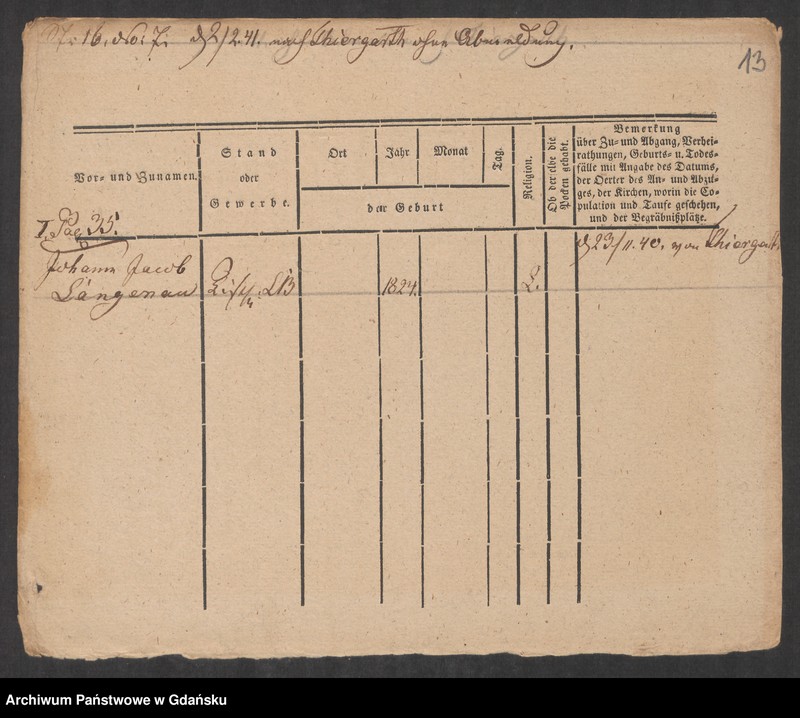 16, No: 7. d 2/2.41. nach Thiergarth ohne Abmeldung.
13
Vor- und Zunamen.
Stand
oder
Gewerbe.
Ort
Jahr
Monat
Tag.
der Geburt
Religion.
Ob derselbe die
Pocken gehabt.
Bemerkung
über Zu- und Abgang, Verhei-
rathungen, Geburts- u. Todes-
fälle mit Angabe des Datums,
der Oerter des An- und Abzu-
ges, der Kirchen, worin die Co-
pulation und Taufe geschehen,
und der Begräbnißplätze.
I. Pag 35.
d 23/11.40. von Thiergart.
Johann Jacob
Längenau
1824.
L.
Archiwum Państwowe w Gdańsku